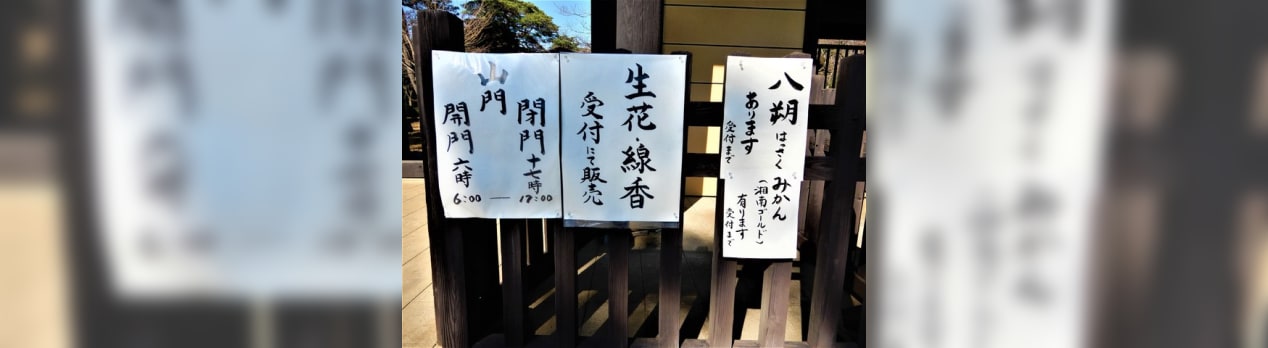 山門
開門 六時
閉門 十七時
6:00 — 17:00
生花・線香
受付にて販売
八朔 はっさく
あります
受付まで
みかん
(湘南ゴールド)
有ります
受付まで